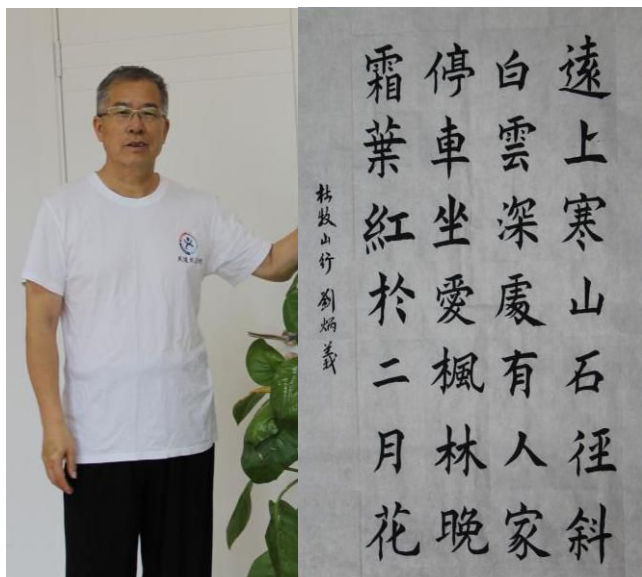 遠上寒山石徑斜
白雲深處有人家
停車坐愛楓林晚
霜葉紅於二月花
杜牧山行 劉炳義